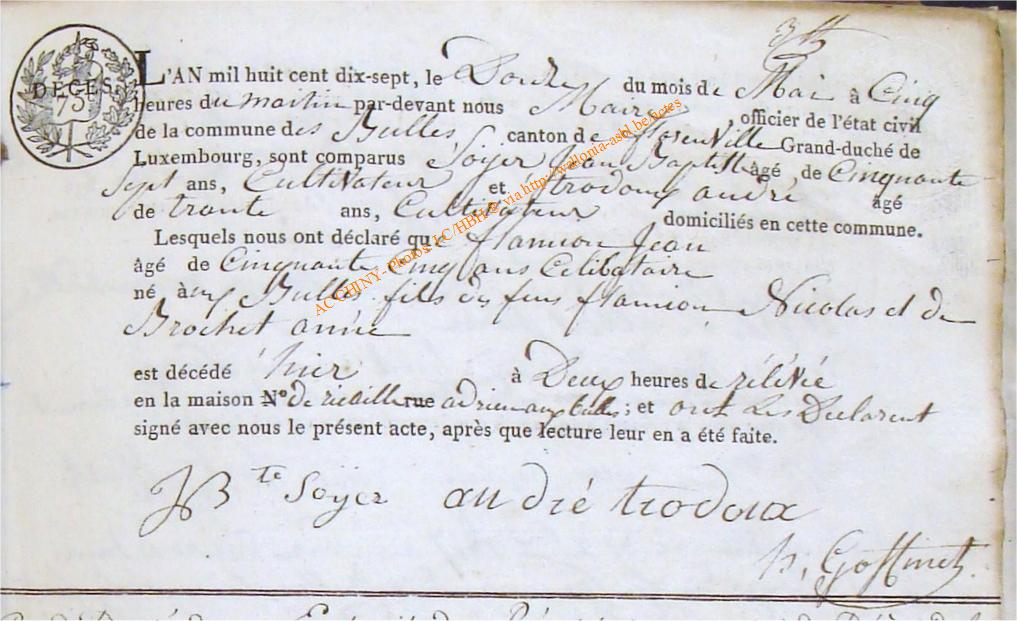 DÉCÈS
75
L'AN mil huit cent dix-sept, le Douze du mois de Mai à Cinq
heures du mattin par-devant nous Maire officier de l'état civil
de la commune des Bulles canton de florenville Grand-duché de
Luxembourg, sont comparus Soÿer Jean Baptiste âgé de Cinquante
Sept ans, Cultivateur et trodoux andré âgé
de trante ans, Cultivateur domiciliés en cette commune.
Lesquels nous ont déclaré que flamion Jean
âgé de Cinquante Cinq ans Celibataire
né à aux Bulles fils de feus flamion Nicolas et de
Brochet année
est décédé hier à Deux heures de rélévée
en la maison N° de rue adrien aux bulles; et ont Les Declarent
signé avec nous le présent acte, après que lecture leur en a été faite.
JBte Soÿer andré trodoux
h, Goffinet
AC CHINY - Photos LC/HBH @ via http://wallonia-asbl.be/actes